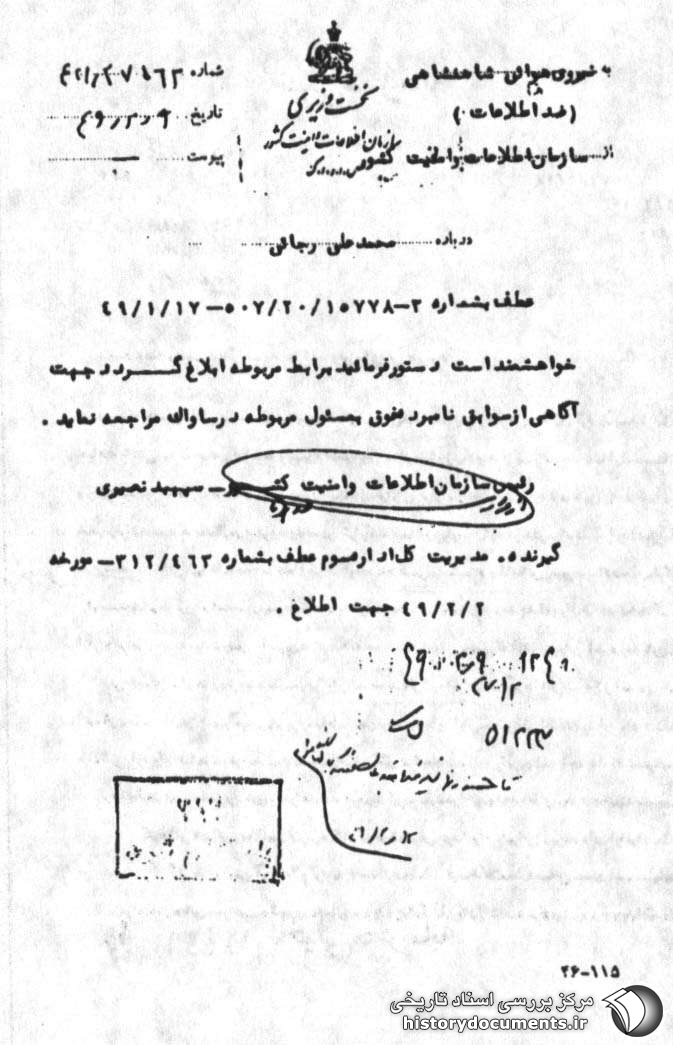 به نیروی هوائی شاهنشاهی
(ضد اطلاعات)
از سازمان اطلاعات و امنیت کشور
نخست وزیری
سازمان اطلاعات و امنیت کشور
س.ا.و.ا.ک
شماره
تاریخ
پیوست
درباره محمدعلی رجائی
عطف بشماره ۳-۵۰۷/۲۰/۱۵۷۷۸-۴۹/۱/۱۷
خواهشمند است دستور فرمائید برابط مربوطه ابلاغ گردد جهت
آگاهی از سوابق نامبرده فوق بمسئول مربوطه در ساواک مراجعه نماید.
رئیس سازمان اطلاعات و امنیت کشور - سپهبد نصیری
گیرنده. مدیریت کل اداره سوم عطف بشماره ۳۱۲/۴۶۳- مورخه
۴۹/۲/۲ جهت اطلاع.
۲۶-۱۱۵
مرکز بررسی اسناد تاریخی
historydocuments.ir